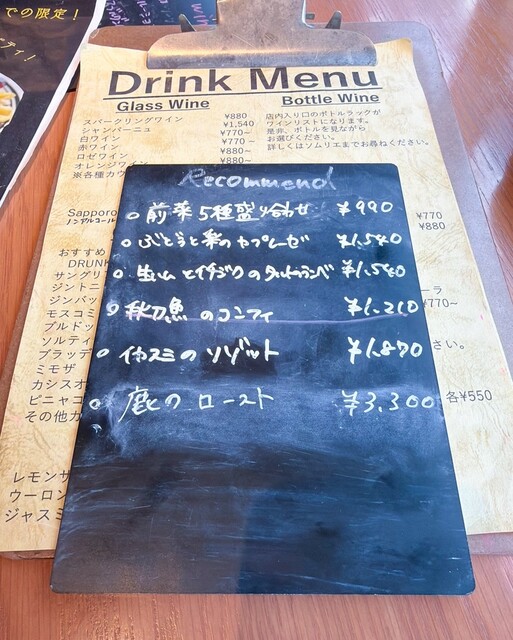 での限定！
ティ！
Drink Menu
Glass Wine
Bottle Wine
スパークリングワイン ¥880
シャンパーニュ ¥1,540
白ワイン ¥770~
赤ワイン ¥770~
ロゼワイン ¥880~
オレンジワイン ¥880~
※各種カウ
店内入り口のボトルラックが
ワインリストになります。
是非、ボトルを見ながら
お選びください。
詳しくはソムリエまでお尋ねください。
Recommend
前菜5種盛り合わせ ¥990
ぶどうと栗のカプレーゼ ¥1,540
生ハムとイチジクの ¥1,540
秋刀魚のコンフィ ¥1,210
イカスミのリゾット ¥1,870
鹿のロースト ¥3,300
Sapporo ¥770
ノンアルコール ¥880
おすすめ
DRUNK
サングリ
ジントニ ーラ
ジンバッ ¥770~
モスコミ
ブルドッ
ソルティ さい。
ブラッデ
ミモザ
カシスオ
ピニャコ 各¥550
その他カ
レモンサ
ウーロン
ジャスミ